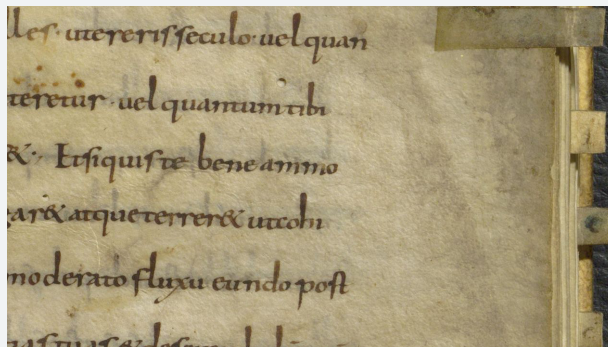 les· utererisseculo· uel quan
teretur· uel quantum tibi
&· Etsiquiste bene animo
ar& atqueterrer& utcohi
moderato fluxu eundo post